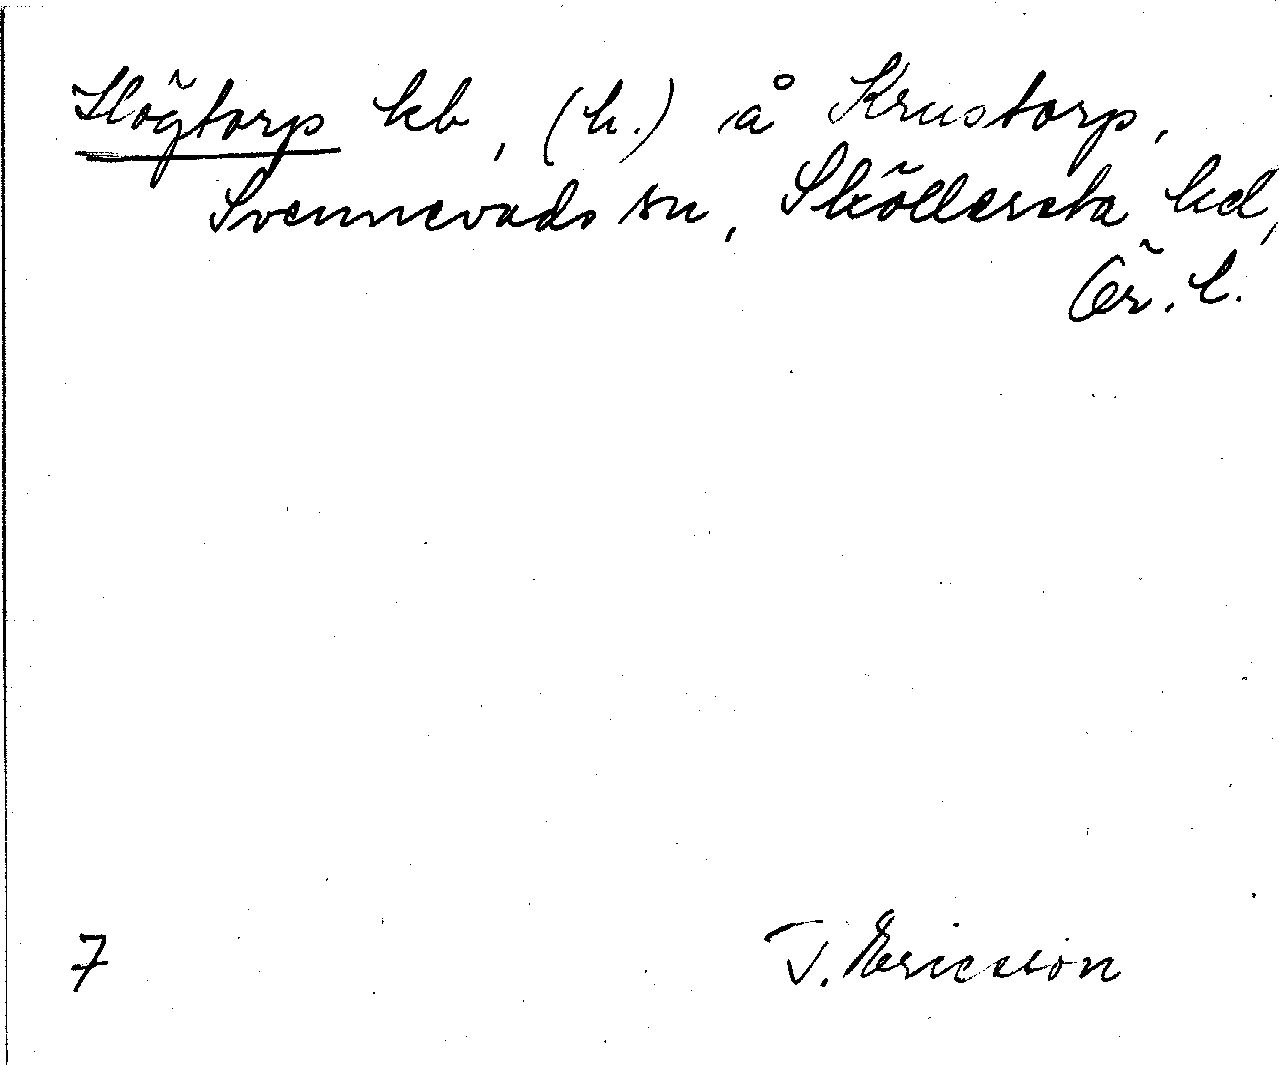 Högtorp hb, (h.) å Krustorp,
Svennevads sn, Sköllersta hd,
Ör. l.
7 T. Ericsson